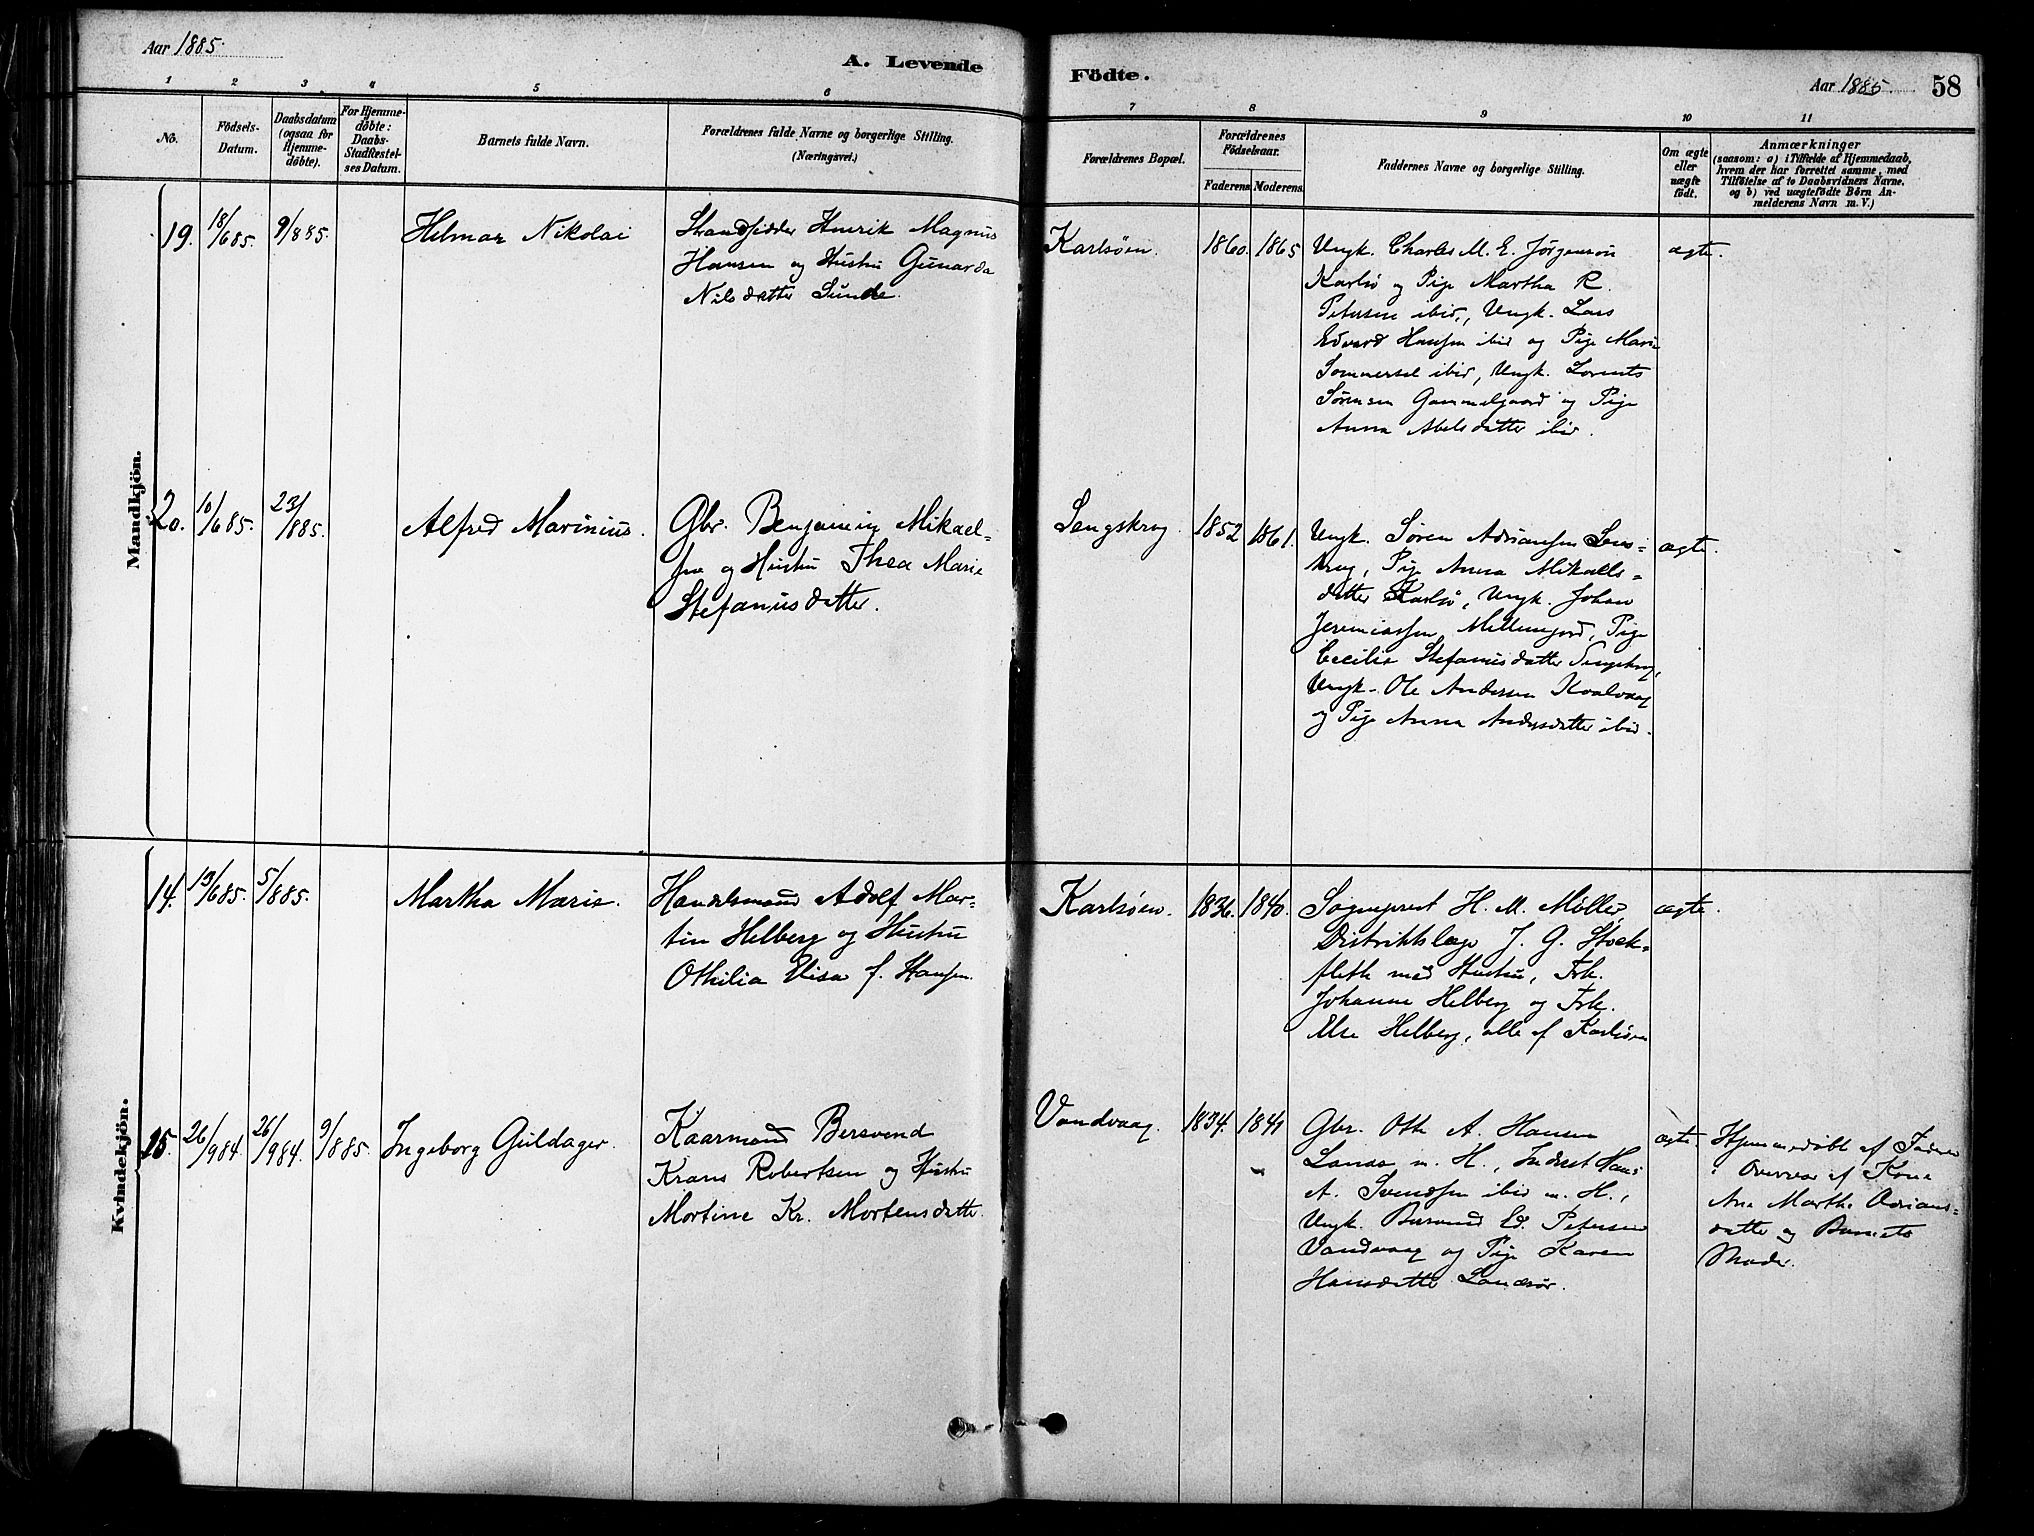 Aar 1885.
A. Levende
Födte.
Aar 1885.
58
1 2 3 4 5 6 7 8 9 10 11
No.
Födsels-
Datum.
Daabsdatum
(ogsaa for
Hjemme-
døbte).
For Hjemme-
døbte:
Daabs-
Stadfæstel-
ses Datum.
Barnets fulde Navn.
Forældrenes fulde Navne og borgerlige Stilling.
(Næringsvei.)
Forældrenes Bopæl.
Forældrenes
Födselsaar.
Faderens. Moderens.
Faddernes Navne og borgerlige Stilling.
Om ægte
eller
uægte
født.
Anmærkninger
(saasom: a) i Tilfælde af Hjemmedaab,
hvem der har forrettet samme, med
Tilføielse af to Daabsvidners Navne,
og b) ved uægtefødte Börn An-
melderens Navn m. V.)
Mandkjön.
19. 18/6 85. 9/8 85. Hilmar Nikolai
Strandsidder Henrik Magnus
Hansen og Hustru Gunarda
Nilsdatter Sunde.
Karlsöen. 1860. 1865
Ungk. Charles M. E. Jörgensen
Karlsö og Pige Martha R.
Petersen ibid., Ungk. Lars
Edvard Hansen ibid og Pige Marie
Sommersel ibid, Ungk. Lorents
Sørensen Gammelgaard og Pige
Anna Abelsdatter ibid.
ægte.
20. 10/6 85. 23/8 85. Alfred Marinius.
Gbr. Benjamin Mikael-
sen og Hustru Thea Marie
Stefanusdatter.
Lengskrog. 1852 1861.
Ungk. Søren Adriansen Lens-
krog, Pige Anna Mikaels-
datter Karlsö, Ungk. Johan
Jeremiassen Mellemjord, Pige
Cecilie Stefanusdatter
Ungk. Ole Andersen Kvalvaag
og Pige Anna Andersdatter ibid.
ægte.
Kvindekjön.
14. 13/6 85. 5/8 85. Martha Marie.
Handelsmand Adolf Mar-
tin Helberg og Hustru
Othilia Elisa f. Hansen.
Karlsöen. 1836. 1840.
Sogneprest H. M. Møller,
Distriktslæge J. G. Stock-
fleth med Hustru, Frk.
Johanne Helberg og Frk.
Else Helberg, alle af Karlsöen
ægte.
15. 26/9 84. 26/9 84. 9/8 85. Ingeborg Guldager.
Kaarmand Bersvend
Krans Robertsen og Hustru
Mortine Kr. Mortensdatter.
Vandvaag. 1834. 1841
Gbr. Otto A. Hansen
m. H., Inderst Hans
A. Svendsen ibid m. H.,
Ungk. Bersvend Ed. Petersen
Vandvaag og Pige Karen
Hansdatter
ægte.
Hjemmedøbt af Faderen
i Overvær af Kone
Ane Martha Adrians-
datter og Barnets
Moder.